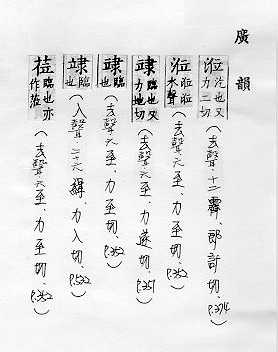 廣韻
涖 泣也又力二切（去聲．十二霽．郎計切．P.374）
涖 涖涖水聲（去聲六至．力至切．P.352）
䇐 臨也又力地切（去聲六至．力遂切．P.351）
䇐 臨也（去聲六至．力至切．P.352）
䇐 臨也（入聲．二十六緝．力入切．P.532）
莅 臨也亦作蒞（去聲六至．力至切．P.352）